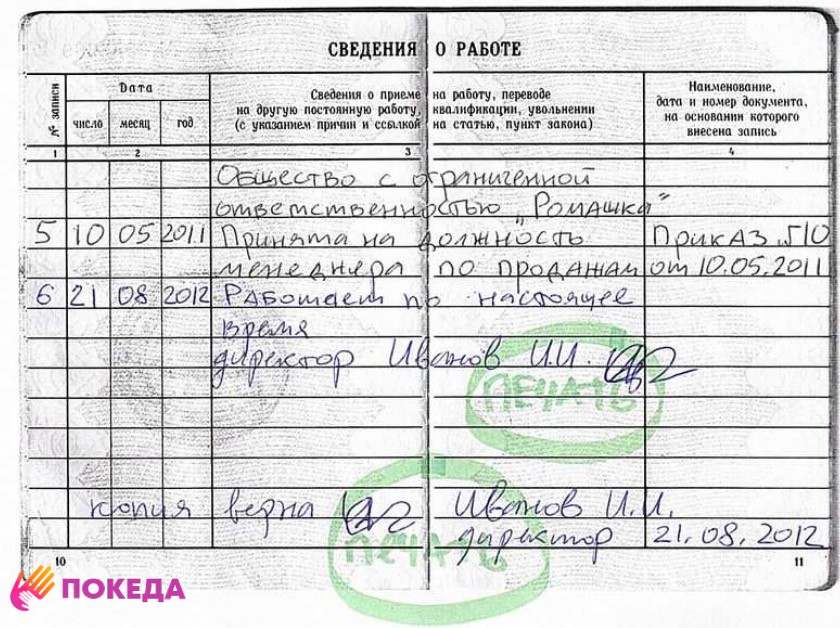 СВЕДЕНИЯ О РАБОТЕ
№ записи
Дата
число
месяц
год
Сведения о приеме на работу, переводе
на другую постоянную работу, квалификации, увольнении
(с указанием причин и ссылкой на статью, пункт закона)
Наименование,
дата и номер документа,
на основании которого
внесена запись
1 2 3 4
Общество с ограниченной
ответственностью „Ромашка"
5 10 05 2011 Принята на должность Приказ №10
менеджера по продажам от 10.05.2011
6 21 08 2012 Работает по настоящее
время
директор Иванов И.И.
ПЕЧАТЬ
копия верна Иванов И.И.
директор 21.08.2012
ПЕЧАТЬ
10 11
ПОКЕДА